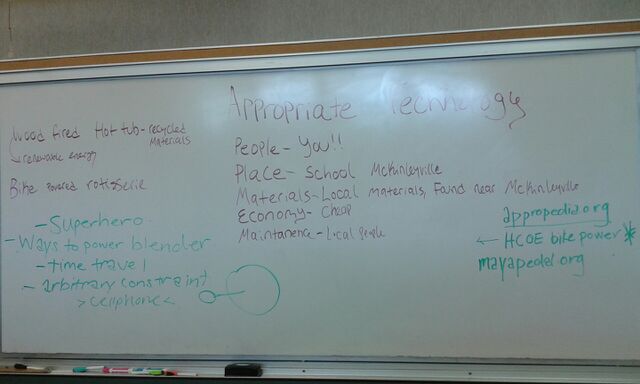 Appropriate Technology
Wood fired Hot tub-recycled
materials
renewable energy
Bike powered rotisserie
People- You!!
Place- School McKinleyville
Materials-Local materials, Found near McKinleyville
Economy- Cheap
Maintanence-Local people
-Superhero
-Ways to power blender
-time travel
-arbitrary constraint
>cellphone<
appropedia.org
← HCOE bike power*
mayapedal.org